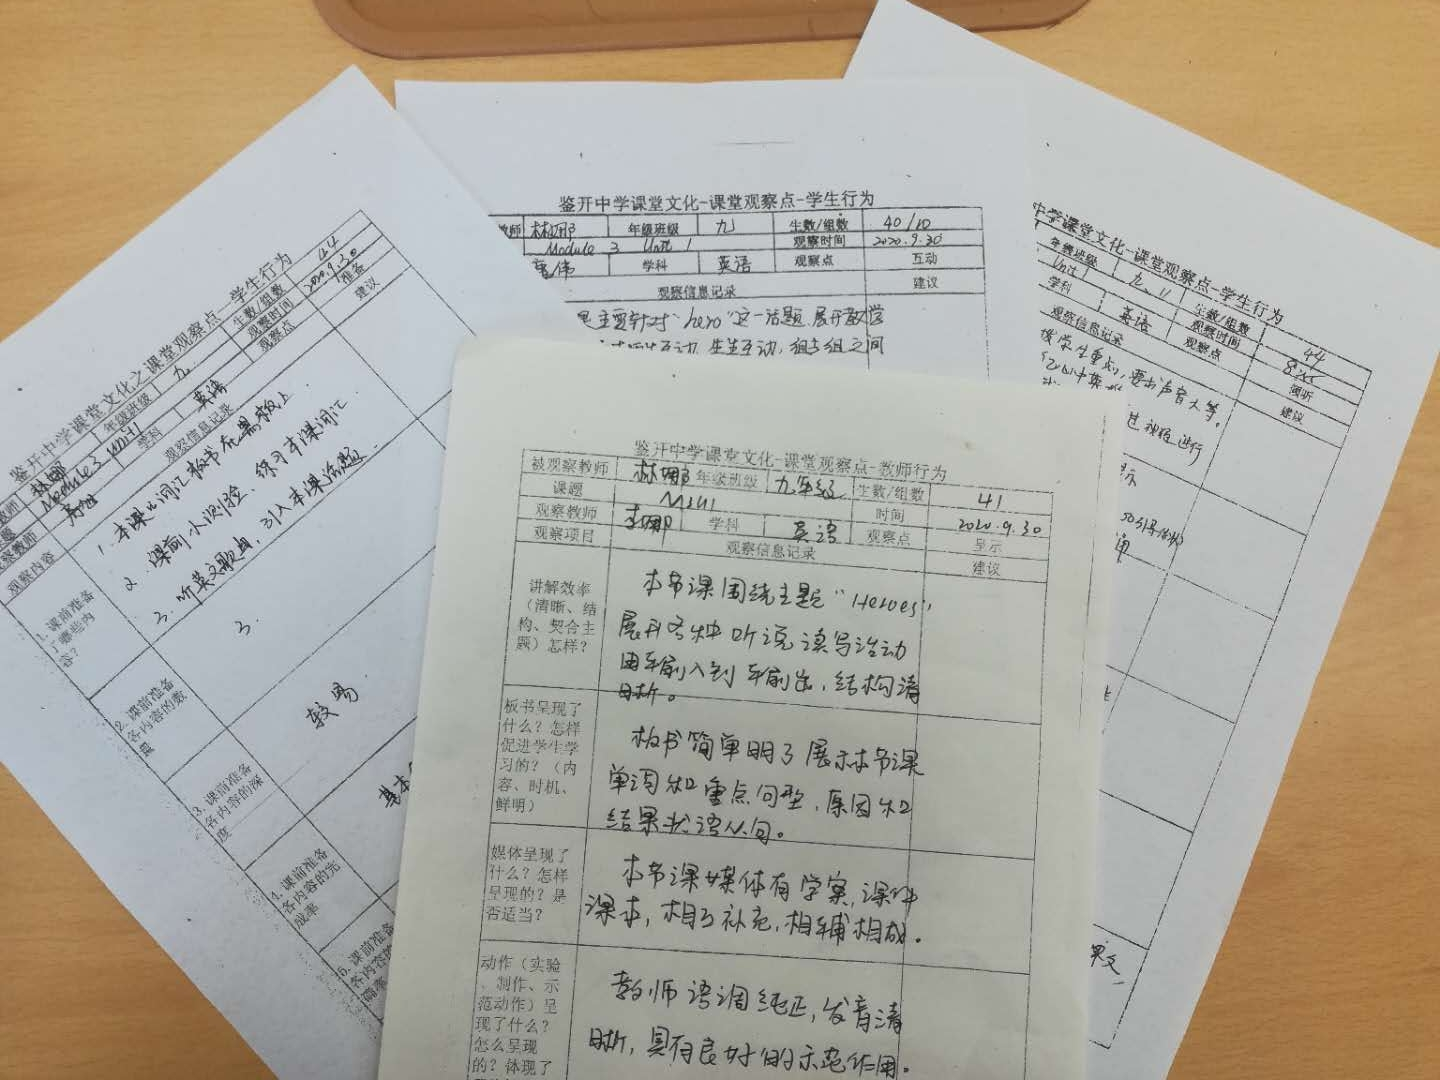 鉴开中学课堂文化之课堂观察点 学生行为
林娜 年级班级 九 生数/组数 44
Module 3 Unit1 观察时间 2020.9.30
学科 英语 观察点 准备
观察内容 观察信息记录 建议
1. 课前准备了哪些内容?
1. 本课的词汇板书在黑板上
2. 课前小测验、练习本课词汇.
3. 听英文歌曲, 引入本课话题.
2. 课前准备各内容的数量
3.
3. 课前准备各内容的深度
较易
4. 课前准备各内容的完成率
基本
鉴开中学课堂文化-课堂观察点-学生行为
教师 林娜 年级班级 九 生数/组数 40/10
Module 3 Unit 1 观察时间 2020.9.30
学科 英语 观察点 互动
观察信息记录 建议
主要针对"hero"这一话题展开教学
师生互动, 生生互动, 组与组之间
中学课堂文化-课堂观察点-学生行为
年级班级 九 11 生数/组数 44
Unit1 观察时间
学科 英语 观察点 倾听
观察信息记录 建议
学生重点, 要求声音大等.
进行
示
鉴开中学课堂文化-课堂观察点-教师行为
被观察教师 林娜 年级班级 九年级 生数/组数 41
课题 M3U1 时间 2020.9.30
观察教师 李娜 学科 英语 观察点 呈示
观察项目 观察信息记录 建议
讲解效率
(清晰、结
构、契合主
题)怎样?
本节课围绕主题"Heroes"
展开各种听说读写活动
由输入到输出, 结构清
晰。
板书呈现了
什么?怎样
促进学生学
习的?(内
容、时机、
鲜明)
板书简单明了展示本节课
单词和重点句型, 原因和
结果状语从句。
媒体呈现了
什么?怎样
呈现的?是
否适当?
本节课媒体有学案, 课件
课本, 相互补充, 相辅相成.
动作(实验
、制作、示
范动作)呈
现了什么?
怎么呈现
的?体现了
教师语调纯正, 发音清
晰, 具有良好的示范作用.